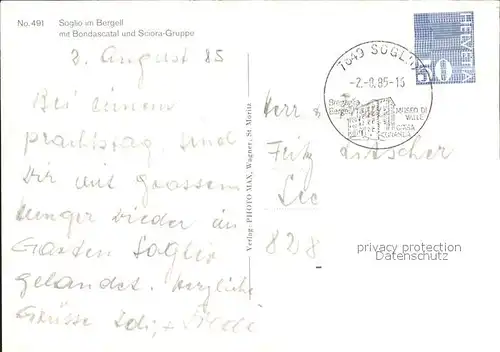 No. 491 Soglio im Bergell
mit Bondascatal und Sciora-Gruppe
2. August 85
Bei einem
prachtstag sind
wir mit grossem
Hunger wieder im
Garten Soglio
gelandet. Herzliche
Grüsse
Verlag: PHOTO MAX, Wagner, St. Moritz
HELVETIA
10
7649 SOGLIO
-2.-8.85-16
MUSEO DI
VALLE
CIÄSA
GRANDA
Herr &
Fritz
828
privacy protection
Datenschutz